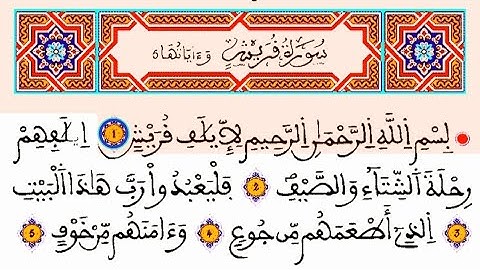 سُورَةُ قُرَيْشٍ وَءَايَاتُهَا 5
بِسْمِ اِللَّهِ اِلرَّحْمَٰنِ اِلرَّحِيمِ لِإِيلَٰفِ قُرَيْشٍ 1 إِۦلَٰفِهِمْ
رِحْلَةَ اَلشِّتَآءِ وَالصَّيْفِ 2 فَلْيَعْبُدُواْ رَبَّ هَٰذَا اَلْبَيْتِ
3 اِلذِےٓ أَطْعَمَهُم مِّن جُوعٍ 4 وَءَامَنَهُم مِّنْ خَوْفٍ 5